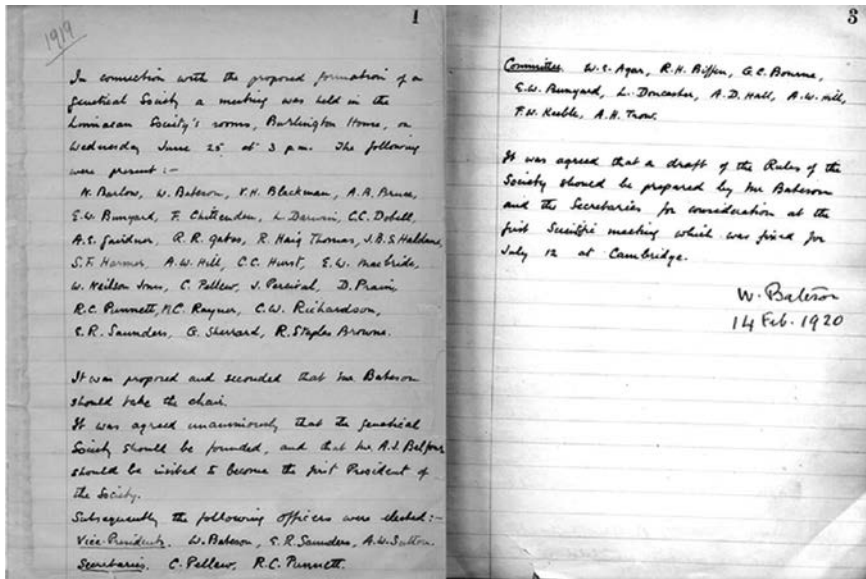 1919
1
In connection with the proposed formation of a
Genetical Society a meeting was held in the
Linnaean Society's rooms, Burlington House, on
Wednesday June 25 at 3 p.m. The following
were present :-
N. Barlow, W. Bateson, V.H. Blackman, A.B. Bruce,
E.W. Bunyard, F. Chittenden, L. Darwin, C.C. Dobell,
A.E. Gairdner, R.R. Gates, R. Haig Thomas, J.B.S. Haldane,
S.F. Harmer, A.W. Hill, C.C. Hurst, E.W. MacBride,
W. Neilson Jones, C. Pellew, J. Percival, D. Prain,
R.C. Punnett, M.C. Rayner, C.W. Richardson,
E.R. Saunders, G. Sherrard, R. Staples Browne.
It was proposed and seconded that Mr. Bateson
should take the chair.
It was agreed unanimously that the Genetical
Society should be founded, and that Mr. A.J. Balfour
should be invited to become the first President of
the Society.
Subsequently the following officers were elected :-
Vice-Presidents. W. Bateson, E.R. Saunders, A.W. Sutton.
Secretaries. C. Pellew, R.C. Punnett.
3
Committee. W.E. Agar, R.H. Biffen, G.C. Bourne,
E.W. Bunyard, L. Doncaster, A.D. Hall, A.W. Hill,
F.W. Keeble, A.H. Trow.
It was agreed that a draft of the Rules of the
Society should be prepared by Mr Bateson
and the Secretaries for consideration at the
first Scientific meeting which was fixed for
July 12 at Cambridge.
W. Bateson
14 Feb. 1920